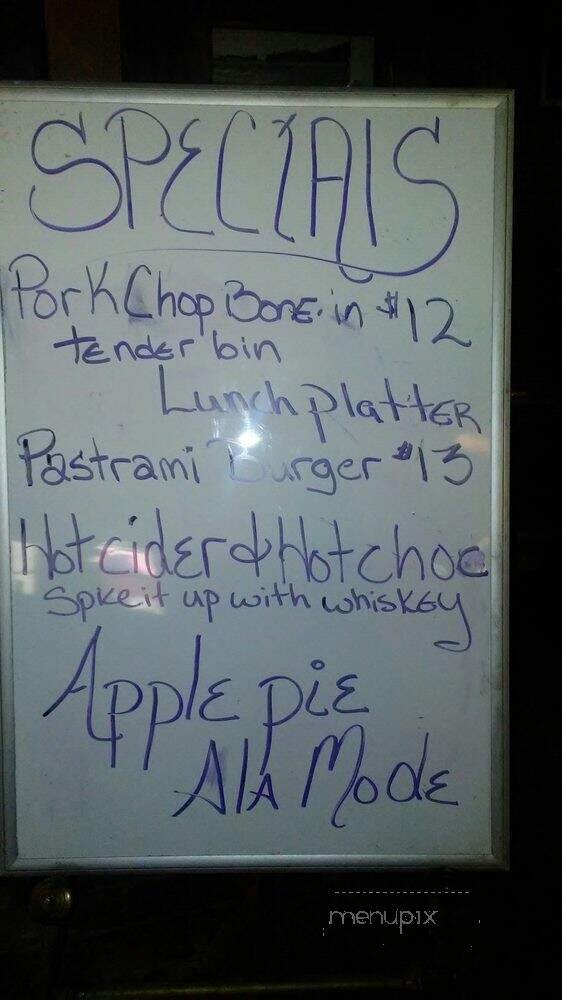 SPECIAlS
Pork Chop Bone-in $12
tender bin
Lunch platter
Pastrami Burger $13
Hot cider & Hot choc
Spke it up with whiskey
Apple pie
Ala Mode
menupix